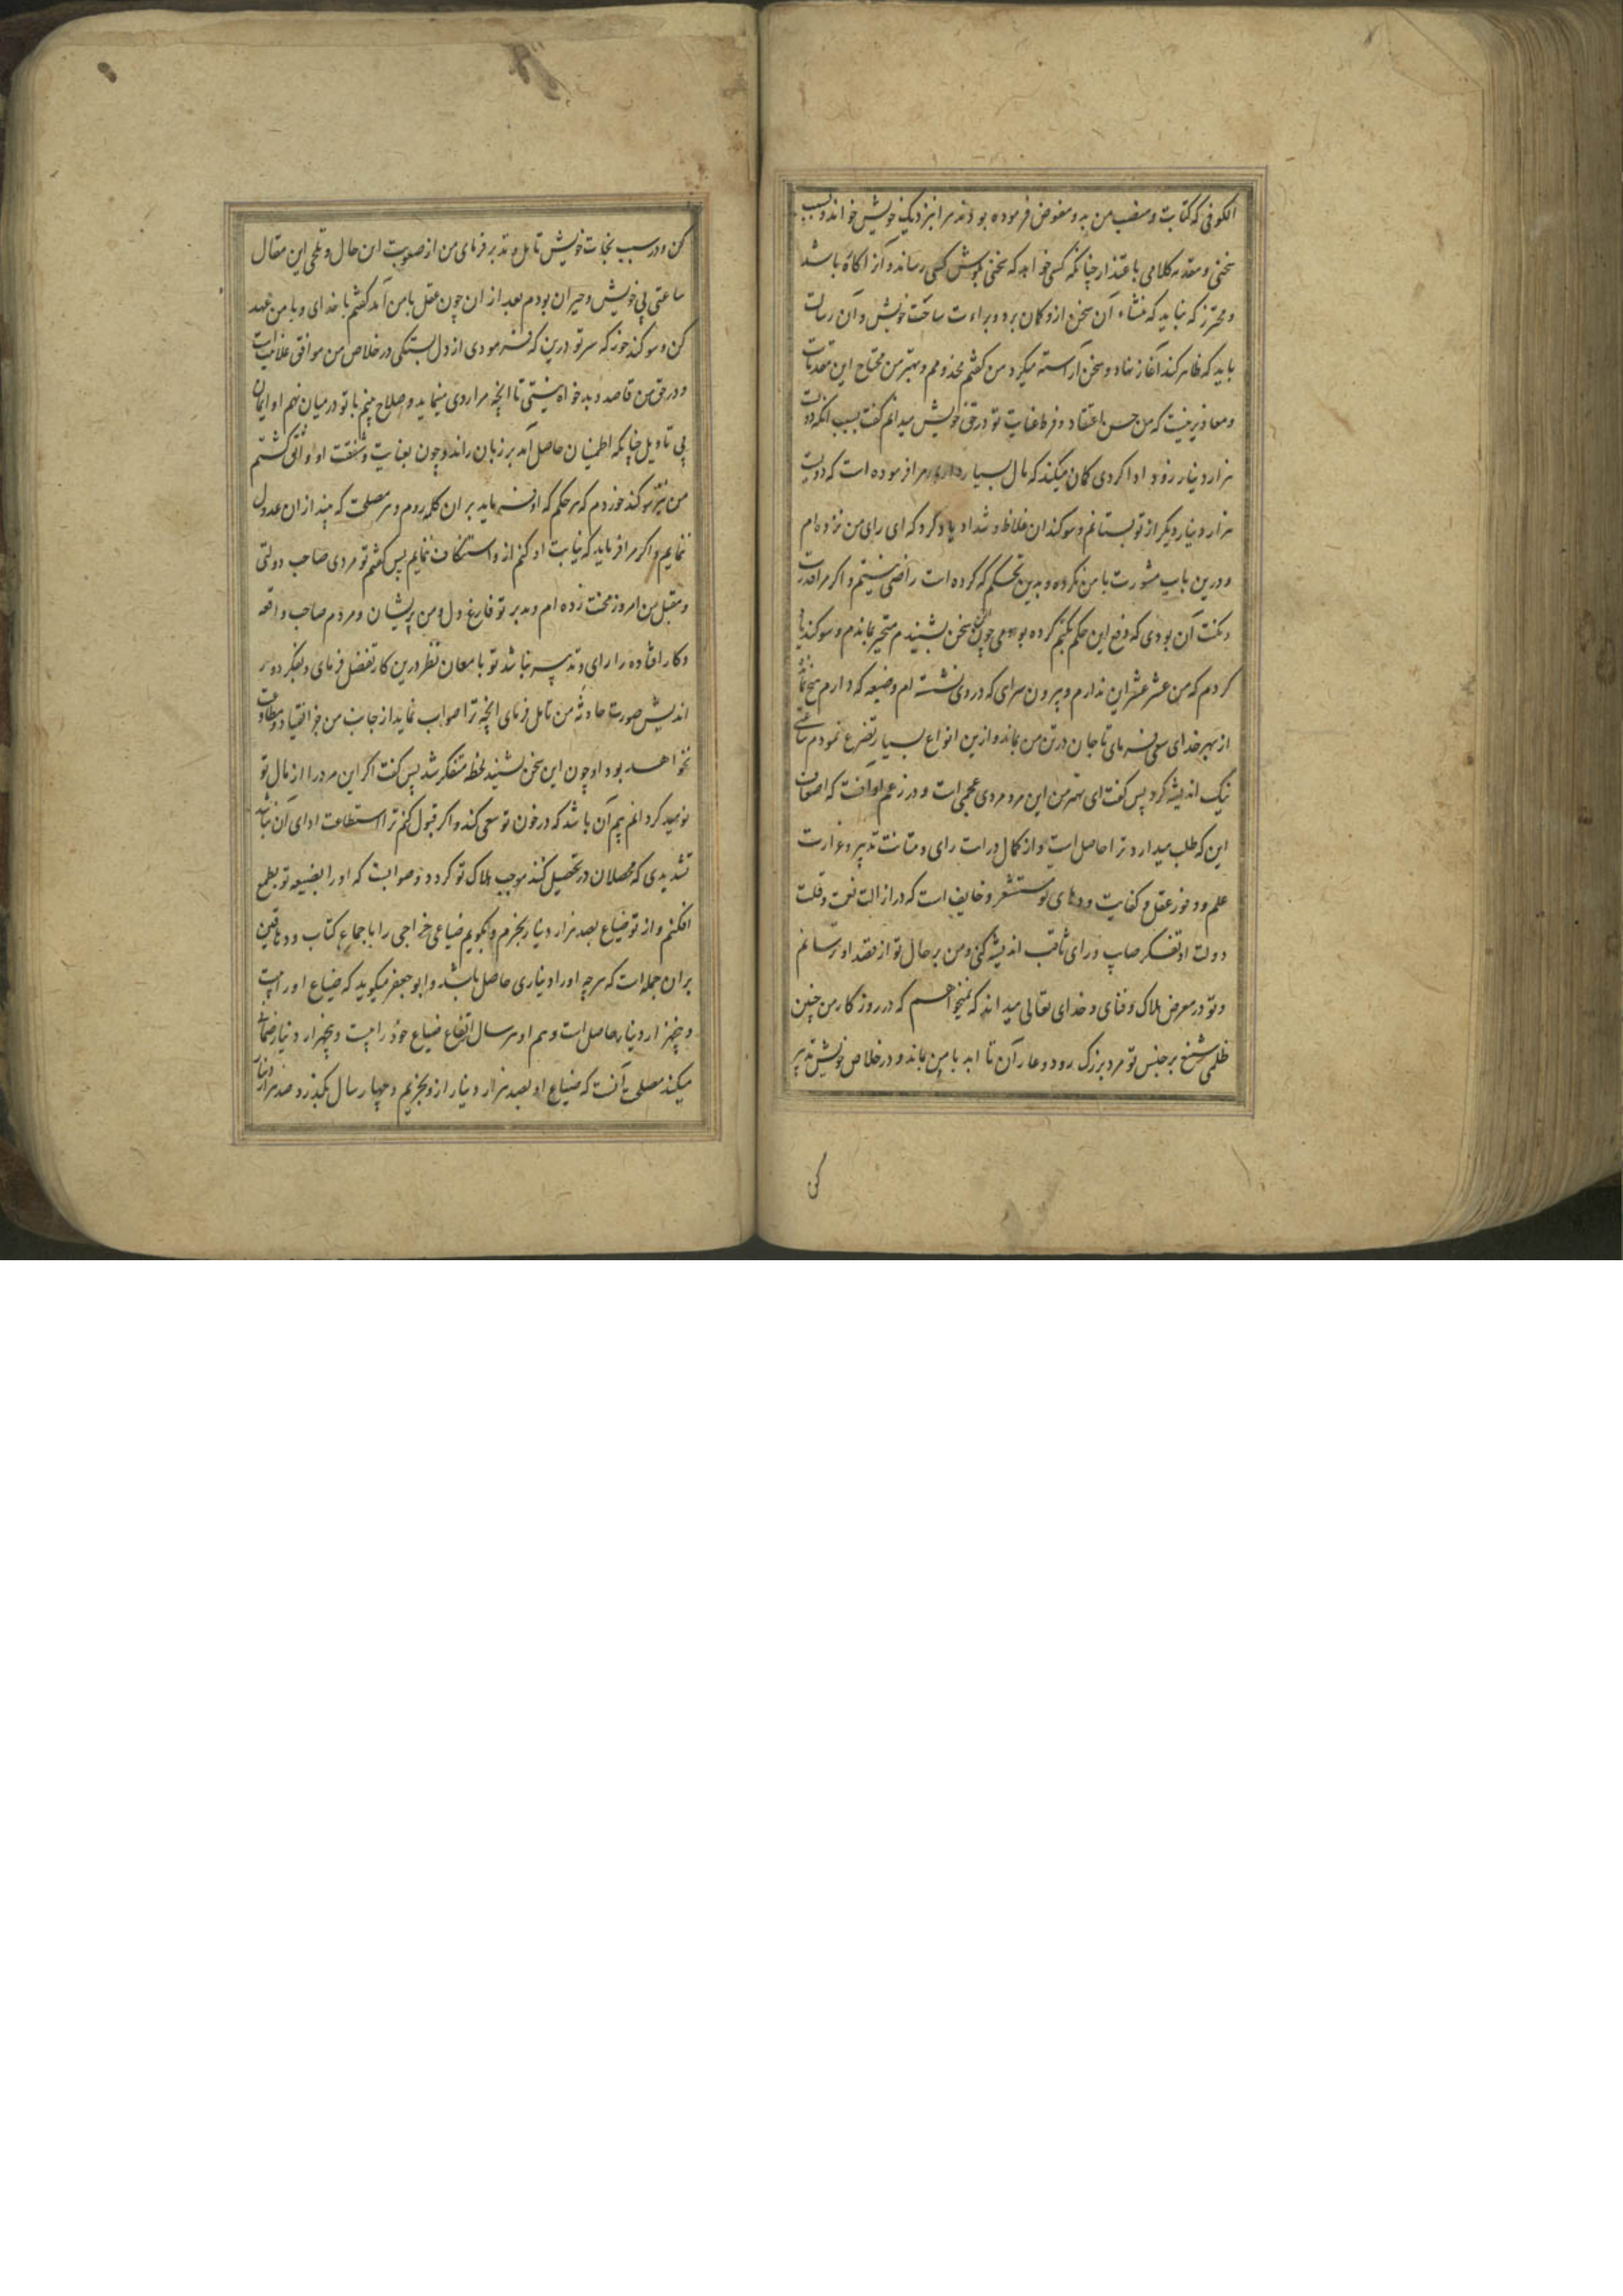 الکوفی که کتابت و منصب من بدو مفوض فرموده بودند مرا نزدیک خویش خواند و بسبب
سخنی و مقدمه کلامی باعتذار چنانکه کسی خواهد که سخنی بگوش کسی رساند و از آن کاره باشد
و محترز که نباید که منشاء آن سخن ازو گمان برد و براءت ساحت خویش و آن رسالت
باید که ظاهر کند آغاز نهاد و سخن آراسته میکرد من گفتم مخدومم و مهتر من محتاج این مقدمات
و معاذیر نیست که من حسن اعتقاد و فرط عنایت تو در حق خویش میدانم گفت بسبب انکه دویست
هزار دینار زود ادا کردی گمان میکند که مال بسیار داری و مرا فرموده است که دویست
هزار دینار دیگر از تو بستانم و سوکندان غلاظ و شداد یاد کرد که ای رای من نزده‌ام
و درین باب مشورت با من نکرده و بدین تحکم که کرده است راضی نیستم و اگر مرا قدرت
و مکنت آن بودی که دفع این حکم بکنم کرده بودمی چون این سخن بشنیدم متحیر بماندم و سوکند یاد
کردم که من عشر عشر این ندارم و بیرون سرای که در وی نشسته ام و ضیعه که دارم هیچ نماند
از بهر خدای سعی فرمای تا جان در تن من بماند و ازین انواع بسیار تضرع نمودم ساعتی
نیک اندیشه کرد پس گفت ای مهتر من این مرد مردی عجمی است و در زعم او آنست که اضعاف
این که طلب میدارد ترا حاصل است و از کمال دراست رای و متانت تدبیر و غزارت
علم و وفور عقل و کفایت و دهای تو مستشعر و خایف است که در ازالت نعمت و قلت
دولت او تفکر صایب و رای ثاقب اندیشه کنی و من بر حال تو از قصد او ترسانم
و تو در معرض هلاک و فنای و خدای تعالی میداند که نمیخواهم که در روزگار من چنین
ظلمی شنیع بر جنس تو مرد بزرگ رود و عار آن تا ابد با من بماند و در خلاص خویش تدبیر
کن
کن و در سبب نجات خویش تامل و تدبر فرمای من از صعوبت این حال و تلخی این مقال
ساعتی بی خویش و حیران بودم بعد از ان چون عقل با من آمد گفتم با خدای و با من عهد
کن و سوکند خور که سر تو درین که فرمودی از دل بستگی در خلاص من موافق علانیت است
و در حق من قاصد و بدخواه نیستی تا انچه مرا روی مینماید و صلاح بینم با تو در میان نهم او ایمان
بی تاویل چنانکه اطمینان حاصل آمد بر زبان راند و چون بعنایت و شفقت او واثق گشتم
من نیز سوکند خوردم که هر حکم که او فرماید بر ان کله روم و هر مصلحت که بیند از ان عدول
ننمایم و اگر مرا فرماید که نیابت او کنم از و استنکاف ننمایم پس گفتم تو مردی صاحب دولتی
و مقبل من امروز محنت زده ام و مدبر تو فارغ دل و من پریشان و مردم صاحب واقعه
و کار افتاده را رای و تدبیر نباشد تو با معان نظر درین کار تفضل فرمای و بفکر دور
اندیش صورت حادثه من تامل فرمای انچه ترا صواب نماید از جانب من جز انقیاد و مطاوعت
نخواهد بود او چون این سخن بشنید لحظه متفکر شد پس گفت اگر این مرد را از مال تو
نومید گردانم بیم آن باشد که در خون تو سعی کند و اگر قبول کنم ترا استطاعت ادای آن نباشد
تشدیدی که محصلان در تحصیل کنند موجب هلاک تو گردد و صوابست که او را بضیعه تو بطمع
افکنم و از تو ضیاع بصد هزار دینار بخرم و بگویم ضیاعی خراجی را با جماع کتاب و دهاقین
بران جمله است که هرچه او را دیناری حاصل باشد و ابو جعفر میگوید که ضیاع او را بیست
و پنجهزار دینار حاصل است و هم او هر سال ارتفاع ضیاع خود را بیست و پنجهزار دینار ضمان
میکند مصلحت آنست که ضیاع او بصد هزار دینار ازو بخریم و چهار سال بگذرد صد هزار دینار